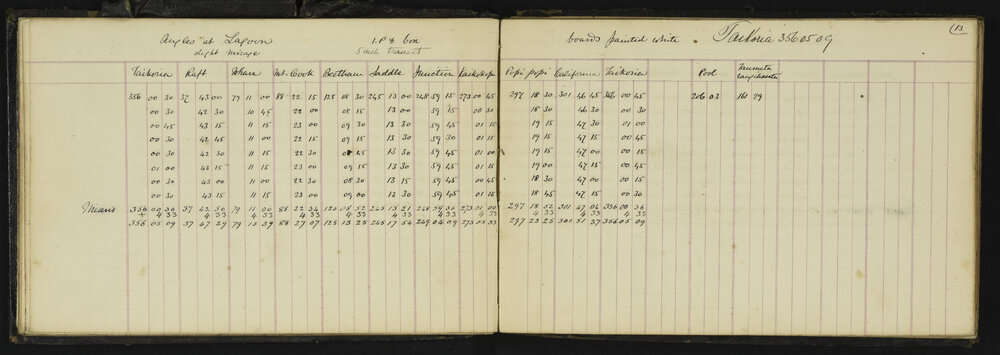 (13
Angles at Lagoon I.P 8 box boards painted white. Taikoria 356 05 09
slight mirage 5 inch transit
Taikorea Ruft Whare Mt. Cook Beetham Saddle Junction Popi popi California Taikorea Pool Taumata
356 00 30 37 43 00 79 11 00 88 22 15 125 08 30 245 13 00 248 59 15 273 00 45 297 18 30 301 46 45 356 00 45 206 03 161 29
00 30 42 30 10 45 22 00 08 15 13 00 59 15 00 30 18 30 46 30 00 30
00 45 43 15 11 15 23 00 09 30 13 30 59 45 01 15 19 15 47 30 01 00
00 30 42 45 11 00 22 15 09 15 13 30 59 30 01 00 19 15 47 15 00 45
00 30 42 30 11 15 22 30 08 45 13 30 59 45 01 00 19 15 47 00 00 15
01 00 43 15 11 15 23 00 09 15 13 30 59 45 01 15 19 00 47 15 00 45
00 30 43 00 11 00 22 30 08 30 13 15 59 45 00 45 18 30 47 00 00 15
00 30 43 15 11 15 23 00 09 00 13 30 59 45 01 15 18 45 47 15 00 30
Means 356 00 36 37 42 56 79 11 00 88 22 34 125 08 52 245 13 21 248 59 36 273 01 00 297 18 52 301 47 04 356 00 36
+ 4 33 4 33 4 33 4 33 4 33 4 33 4 33 4 33 4 33 4 33 4 33
356 05 09 37 47 29 79 15 39 88 27 07 125 13 25 245 17 54 249 04 09 273 05 33 297 23 25 301 51 37 356 05 09